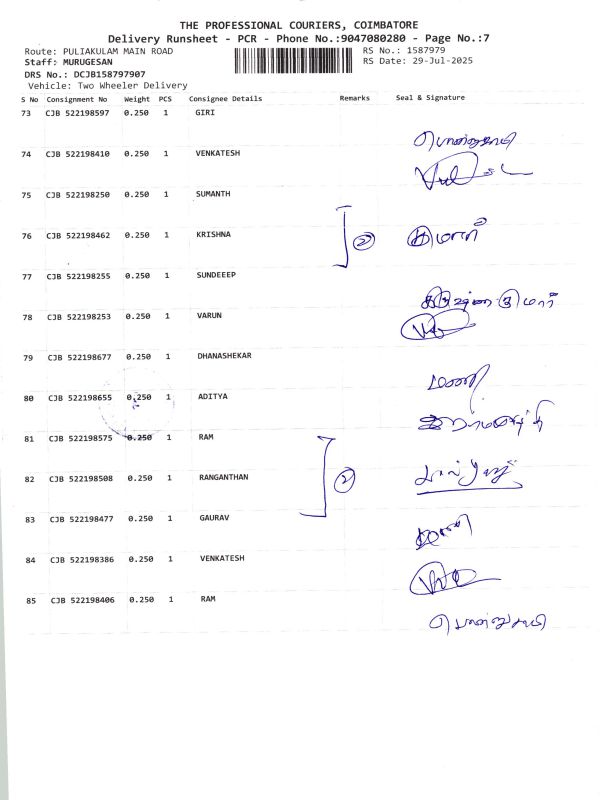 THE PROFESSIONAL COURIERS, COIMBATORE
Delivery Runsheet - PCR - Phone No.:9047080280 - Page No.:7
Route: PULIAKULAM MAIN ROAD RS No.: 1587979
Staff: MURUGESAN RS Date: 29-Jul-2025
DRS No.: DCJB158797907
Vehicle: Two Wheeler Delivery
S No Consignment No Weight PCS Consignee Details Remarks Seal & Signature
73 CJB 522198597 0.250 1 GIRI
74 CJB 522198410 0.250 1 VENKATESH
75 CJB 522198250 0.250 1 SUMANTH
76 CJB 522198462 0.250 1 KRISHNA 2 குமார்
77 CJB 522198255 0.250 1 SUNDEEEP
78 CJB 522198253 0.250 1 VARUN
79 CJB 522198677 0.250 1 DHANASHEKAR
மணி
80 CJB 522198655 0.250 1 ADITYA
81 CJB 522198575 0.250 1 RAM
82 CJB 522198508 0.250 1 RANGANTHAN 2
83 CJB 522198477 0.250 1 GAURAV
84 CJB 522198386 0.250 1 VENKATESH
85 CJB 522198406 0.250 1 RAM